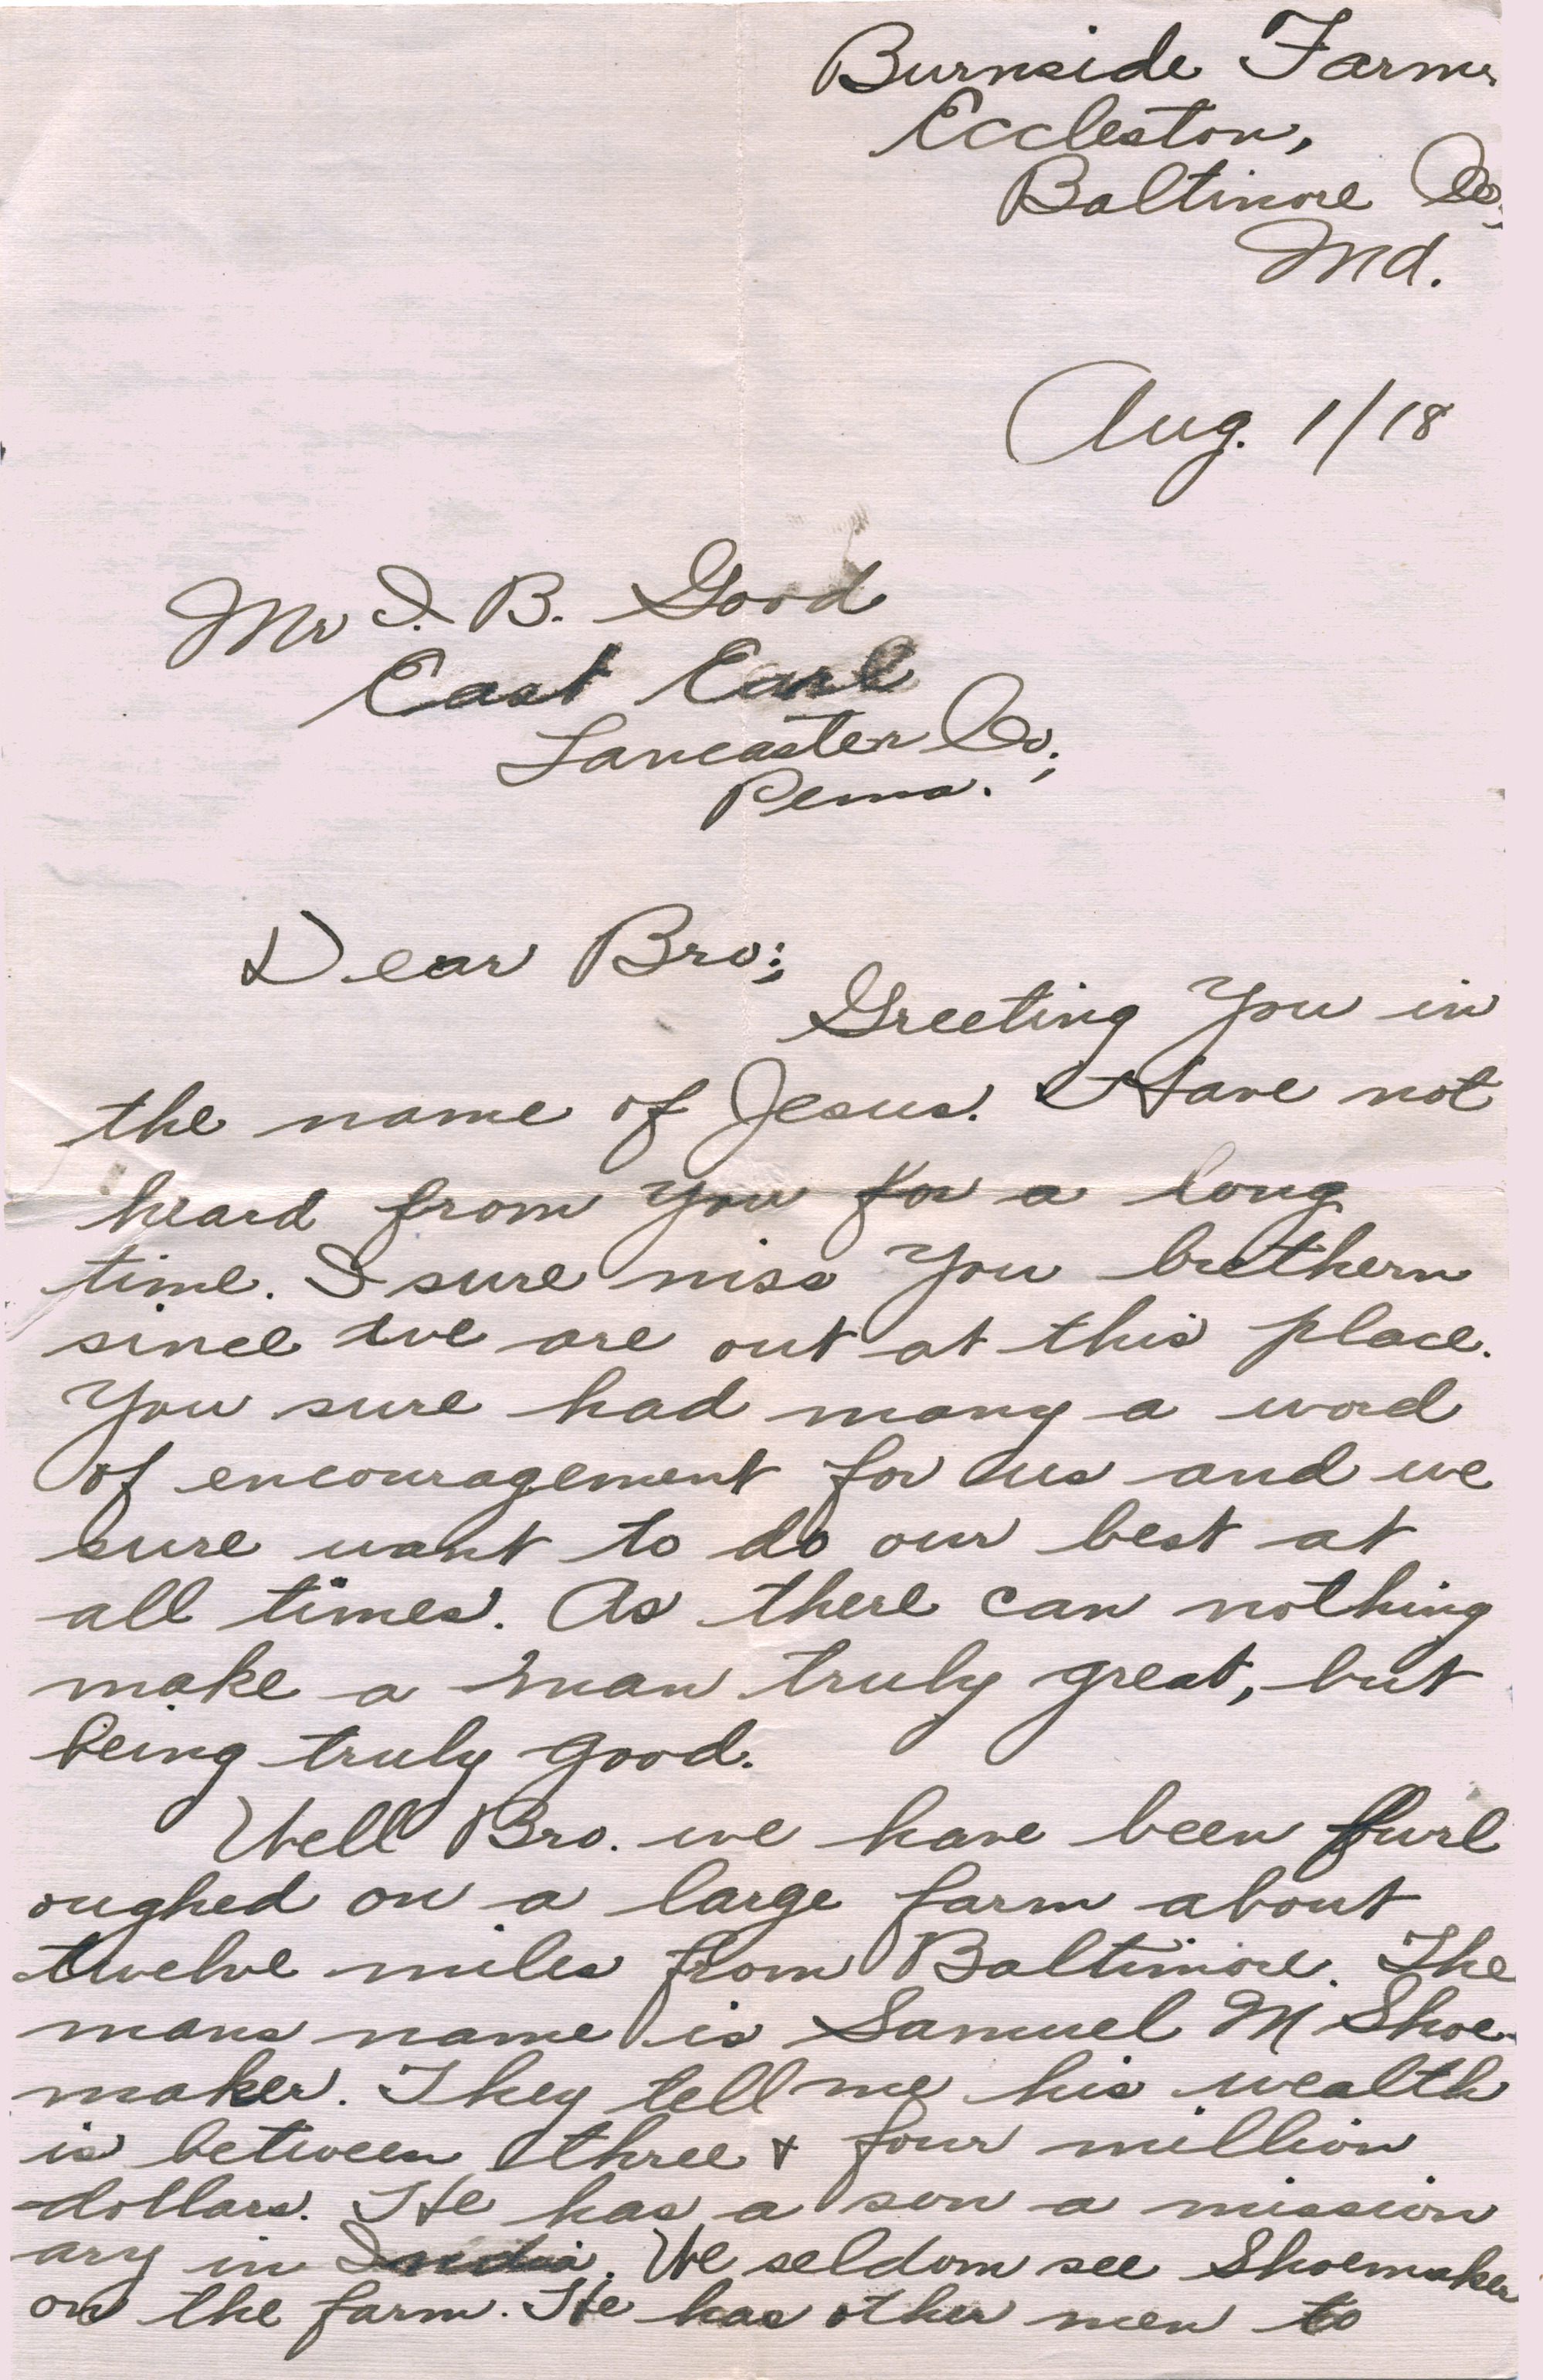 Burnside Farm,
Eccleston,
Baltimore Co,
Md.
Aug. 1/18
Mr I. B. Good
East Earl
Lancaster Co.,
Penna.
Dear Bro;
Greeting You in
the name of Jesus. I Have not
heard from you for a long
time. I sure miss You brethern
since we are out at this place.
You sure had many a word
of encouragement for us and we
sure want to do our best at
all times. As there can nothing
make a man truly great, but
being truly good.
Well Bro. we have been furl
oughed on a large farm about
twelve miles from Baltimore. The
mans name is Samuel M Shoe-
maker. They tell me his wealth
is between three & four million
dollars. He has a son a mission
ary in India. We seldom see Shoemaker
on the farm. He has other men to